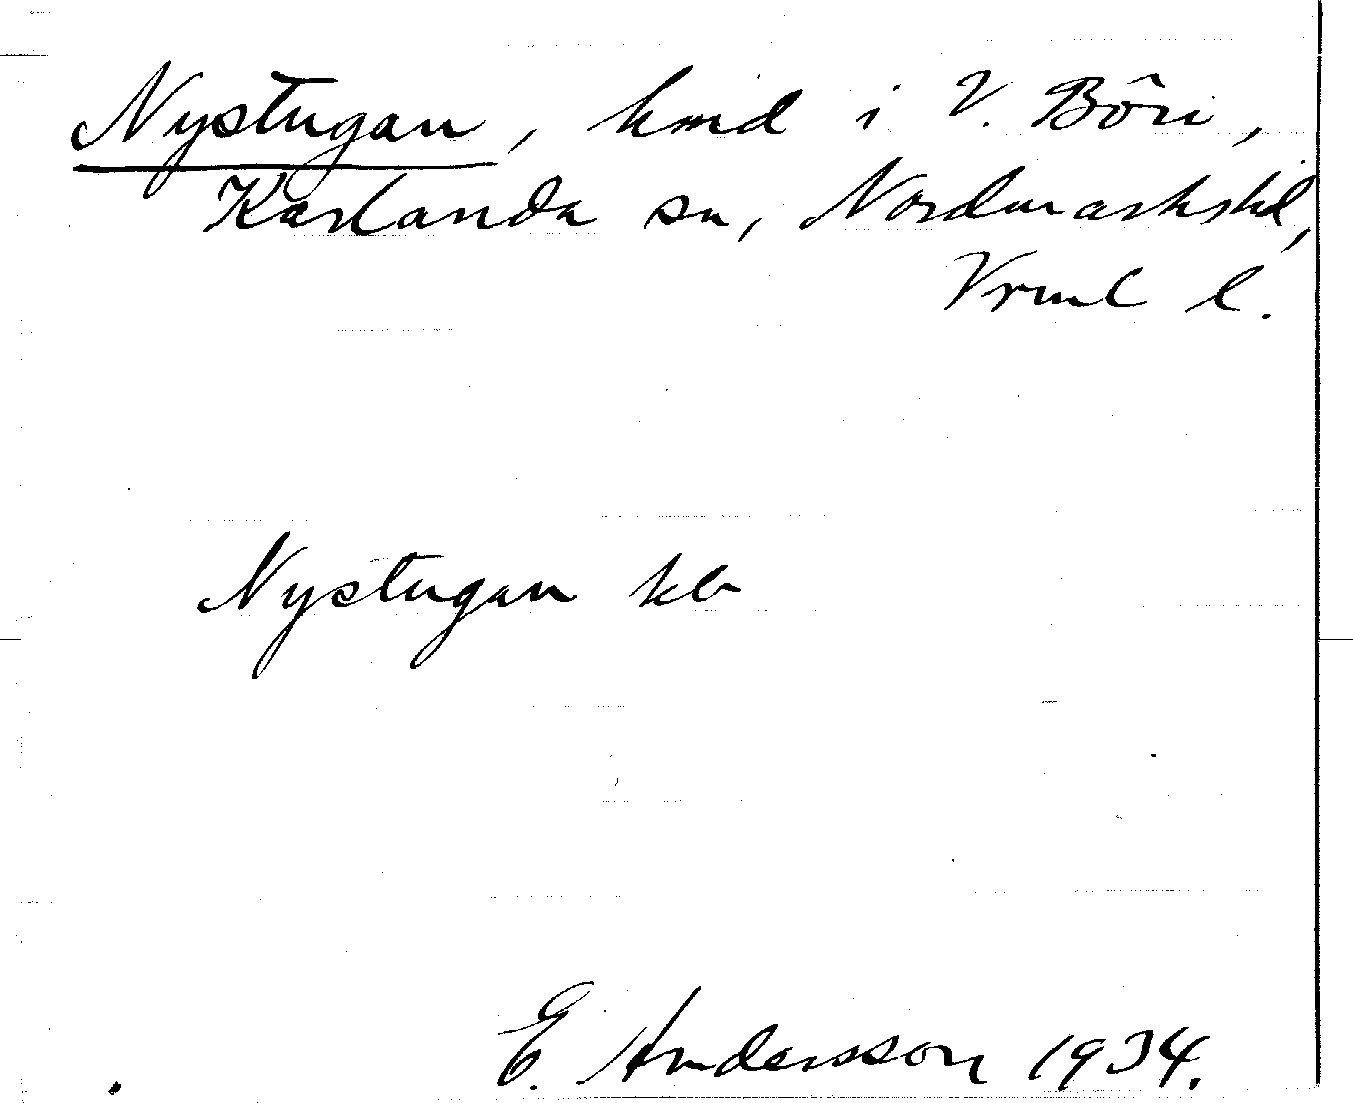 Nystugan, hmd i V. Bön,
Karlanda sn, Nordmarks hd,
Vrml l.
Nystugan kb
E. Andersson 1934.